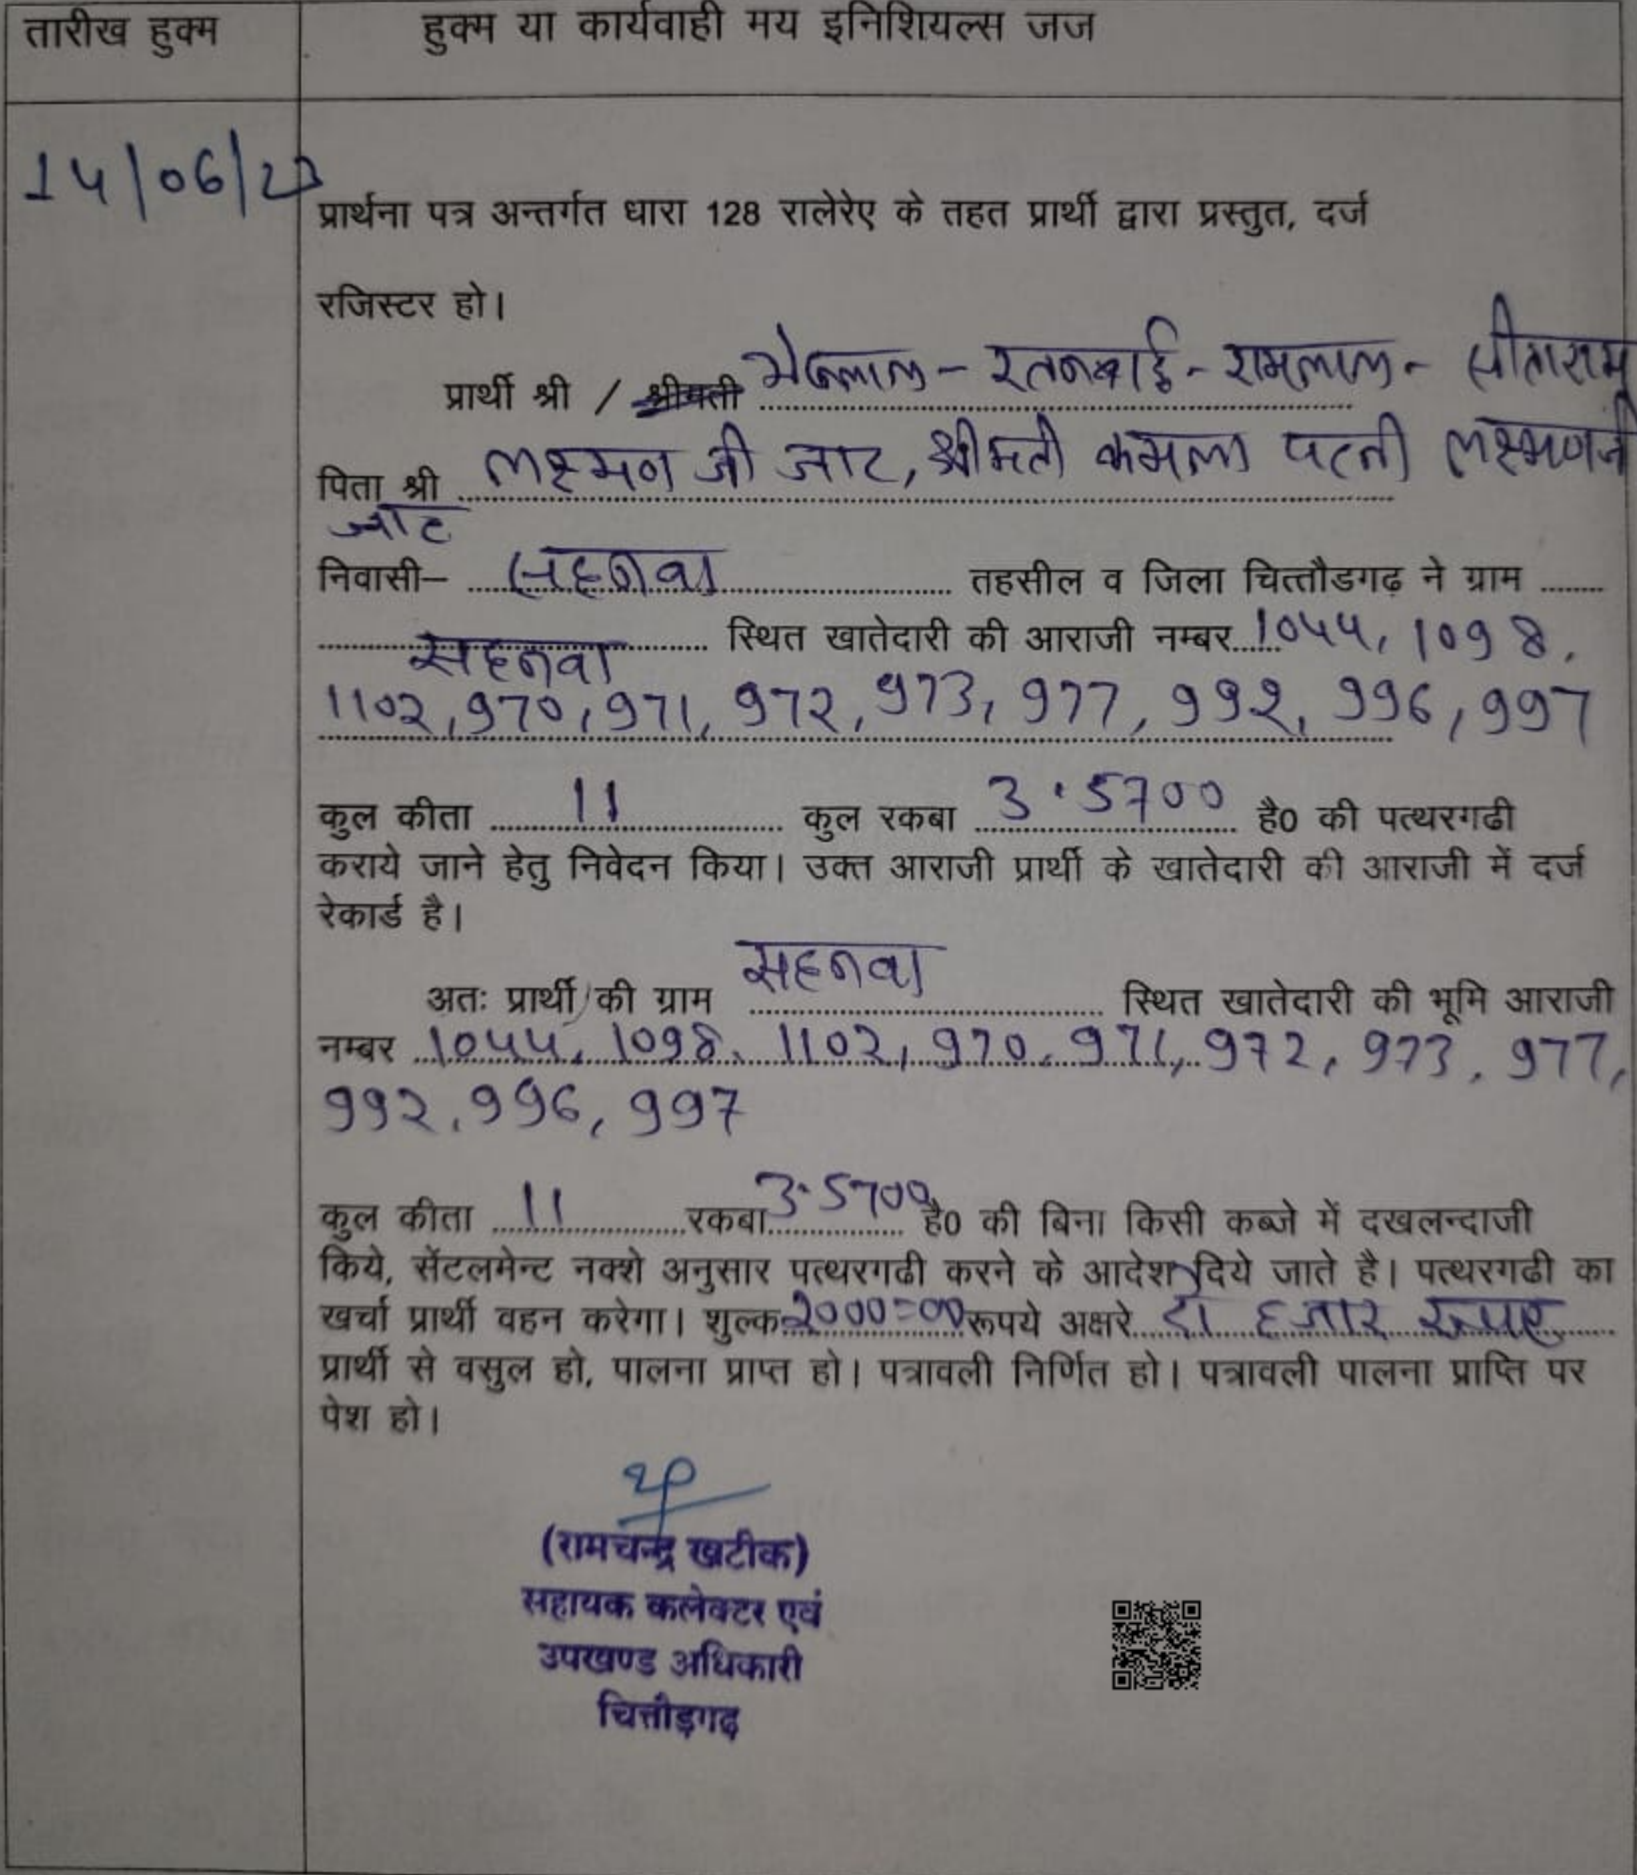 तारीख हुक्म
हुक्म या कार्यवाही मय इनिशियल्स जज
14/06/23
प्रार्थना पत्र अन्तर्गत धारा 128 रालेरेए के तहत प्रार्थी द्वारा प्रस्तुत, दर्ज
रजिस्टर हो।
प्रार्थी श्री / श्रीमती - रतनबाई - रामलाल - सीताराम
पिता श्री लक्ष्मण जी जाट, श्रीमती कमला पत्नी लक्ष्मणजी
जाट
निवासी– सहनवा तहसील व जिला चित्तौडगढ़ ने ग्राम ........
सहनवा स्थित खातेदारी की आराजी नम्बर 1044, 1098,
1102, 970, 971, 972, 973, 977, 992, 996, 997
कुल कीता 11 कुल रकबा 3.5700 है0 की पत्थरगढी
कराये जाने हेतु निवेदन किया। उक्त आराजी प्रार्थी के खातेदारी की आराजी में दर्ज
रेकार्ड है।
अतः प्रार्थी की ग्राम सहनवा स्थित खातेदारी की भूमि आराजी
नम्बर 1044, 1098, 1102, 970, 971, 972, 973, 977,
992, 996, 997
कुल कीता 11 रकबा 3.5700 है0 की बिना किसी कब्जे में दखलन्दाजी
किये, सेंटलमेन्ट नक्शे अनुसार पत्थरगढी करने के आदेश दिये जाते है। पत्थरगढी का
खर्चा प्रार्थी वहन करेगा। शुल्क 2000=00 रूपये अक्षरे दो हजार रूपए
प्रार्थी से वसुल हो, पालना प्राप्त हो। पत्रावली निर्णित हो। पत्रावली पालना प्राप्ति पर
पेश हो।
(रामचन्द्र खटीक)
सहायक कलेक्टर एवं
उपखण्ड अधिकारी
चित्तौड़गढ़